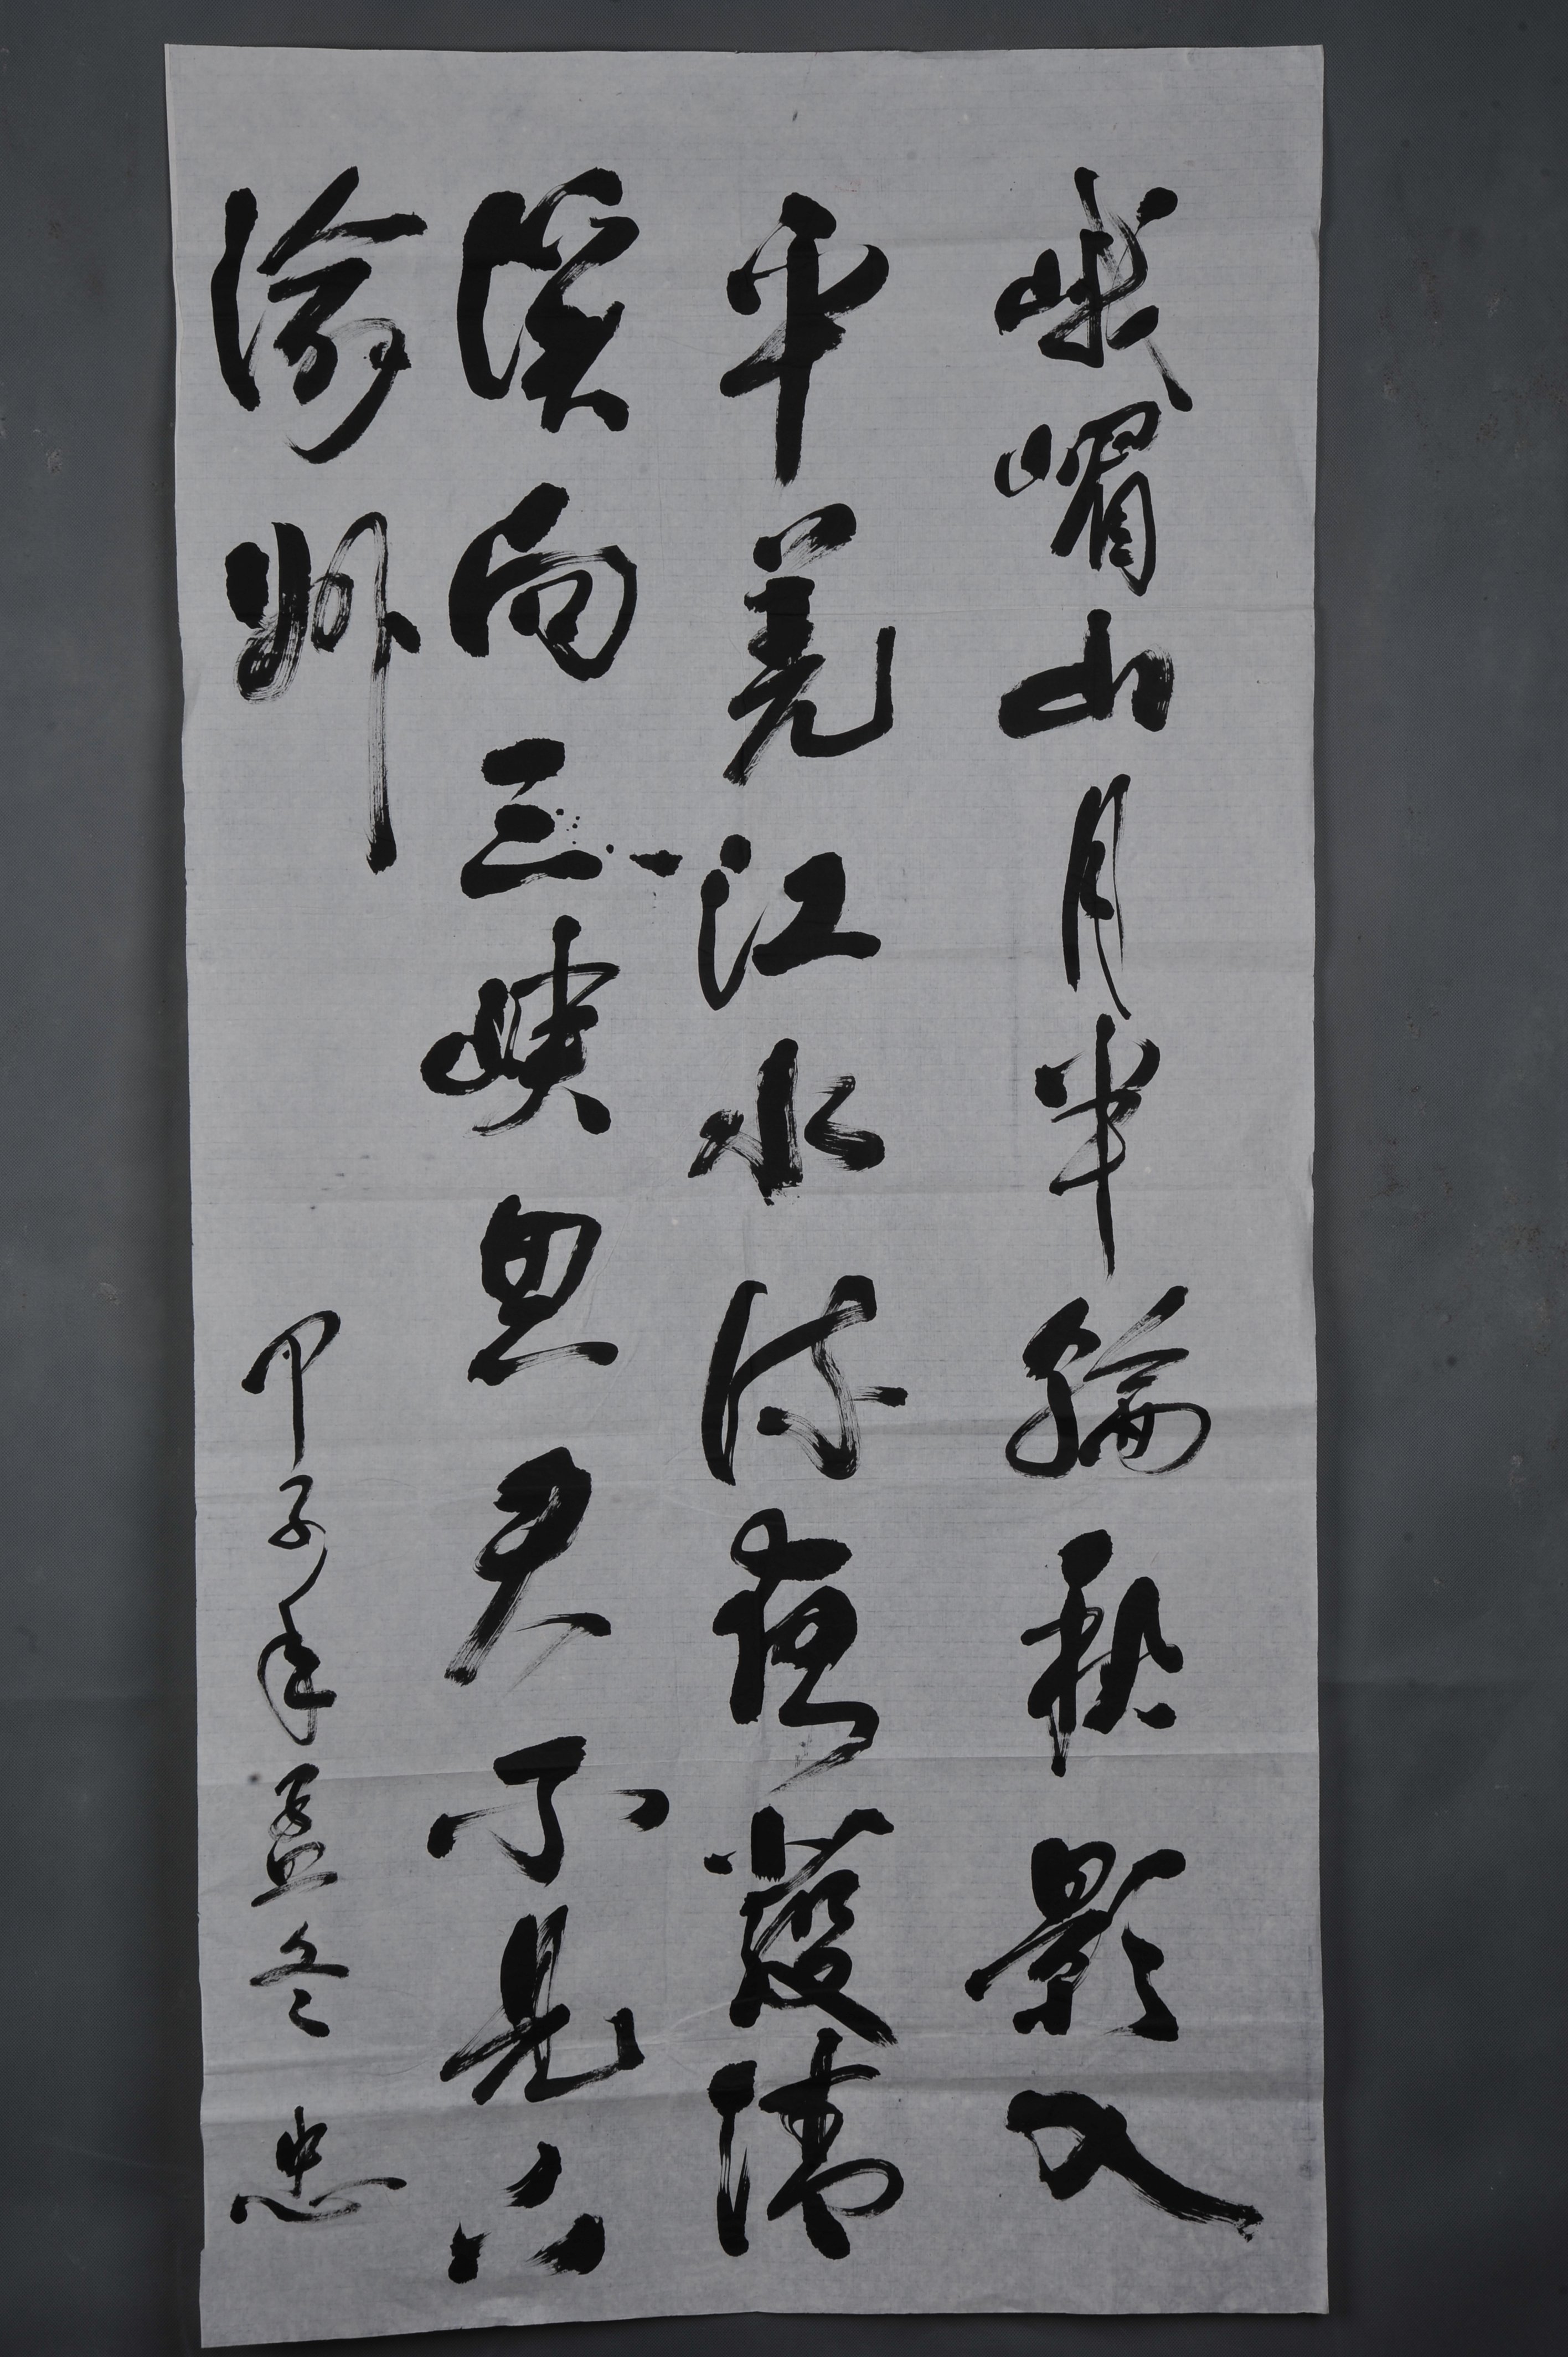 峨嵋山月半輪秋影入
平羌江水流夜發清
溪向三峽思君不見下
渝州
甲子年孟冬 忠